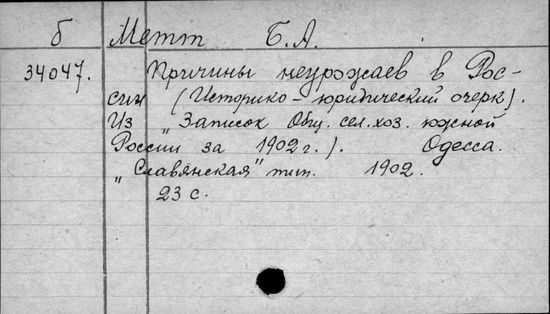 б Метт Б. А.
34047. Причины неурожаев в Рос-
сии (Историко-юридический очерк).
Из „Записок Общ. сел. хоз. южной
России за 1902 г.). Одесса.
„Славянская" тип. 1902.
23 с.